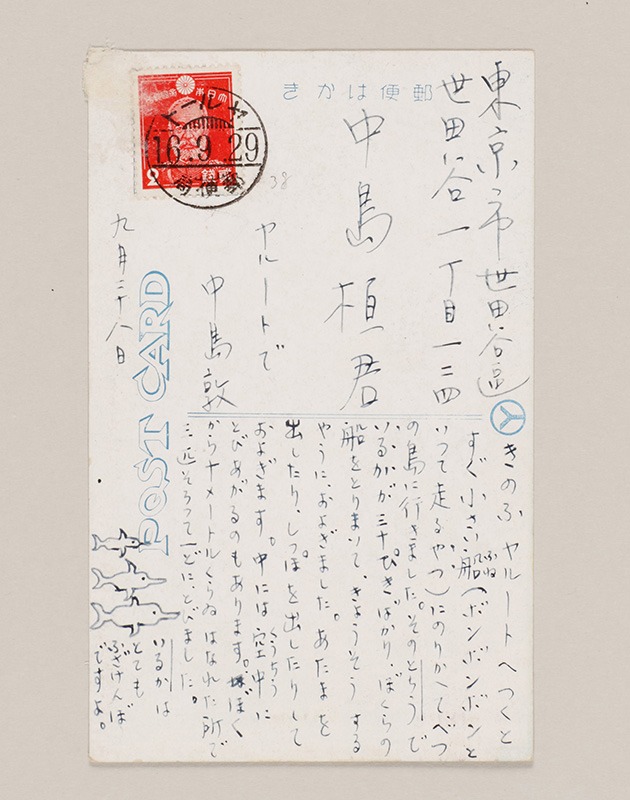 きかは便郵
大日本帝國郵便
ヤルート
16.9.29
郵便局
38
東京市世田谷區
世田谷一丁目一二四
中島桓君
ヤルートで
中島敦
九月二十八日
POST CARD
きのふ ヤルートへつくと
すぐ 小さい船(ボンボンボンと
ふね
いつて走るやつ)にのりかへてべつ
の島に行きました。そのとちうで
いるかが三十ぴきばかり、ぼくらの
船をとりまいて、きょうそうする
やうに、およぎました。あたまを
出したり、しつぽを出したりして
およぎます。中には空中に
くうちう
とびあがるのもあります。ぼく
からナメートルくらゐはなれた所で
三匹そろつて一どに、とびました。
いるかは
とても
ふざけんぼ
ですよ。